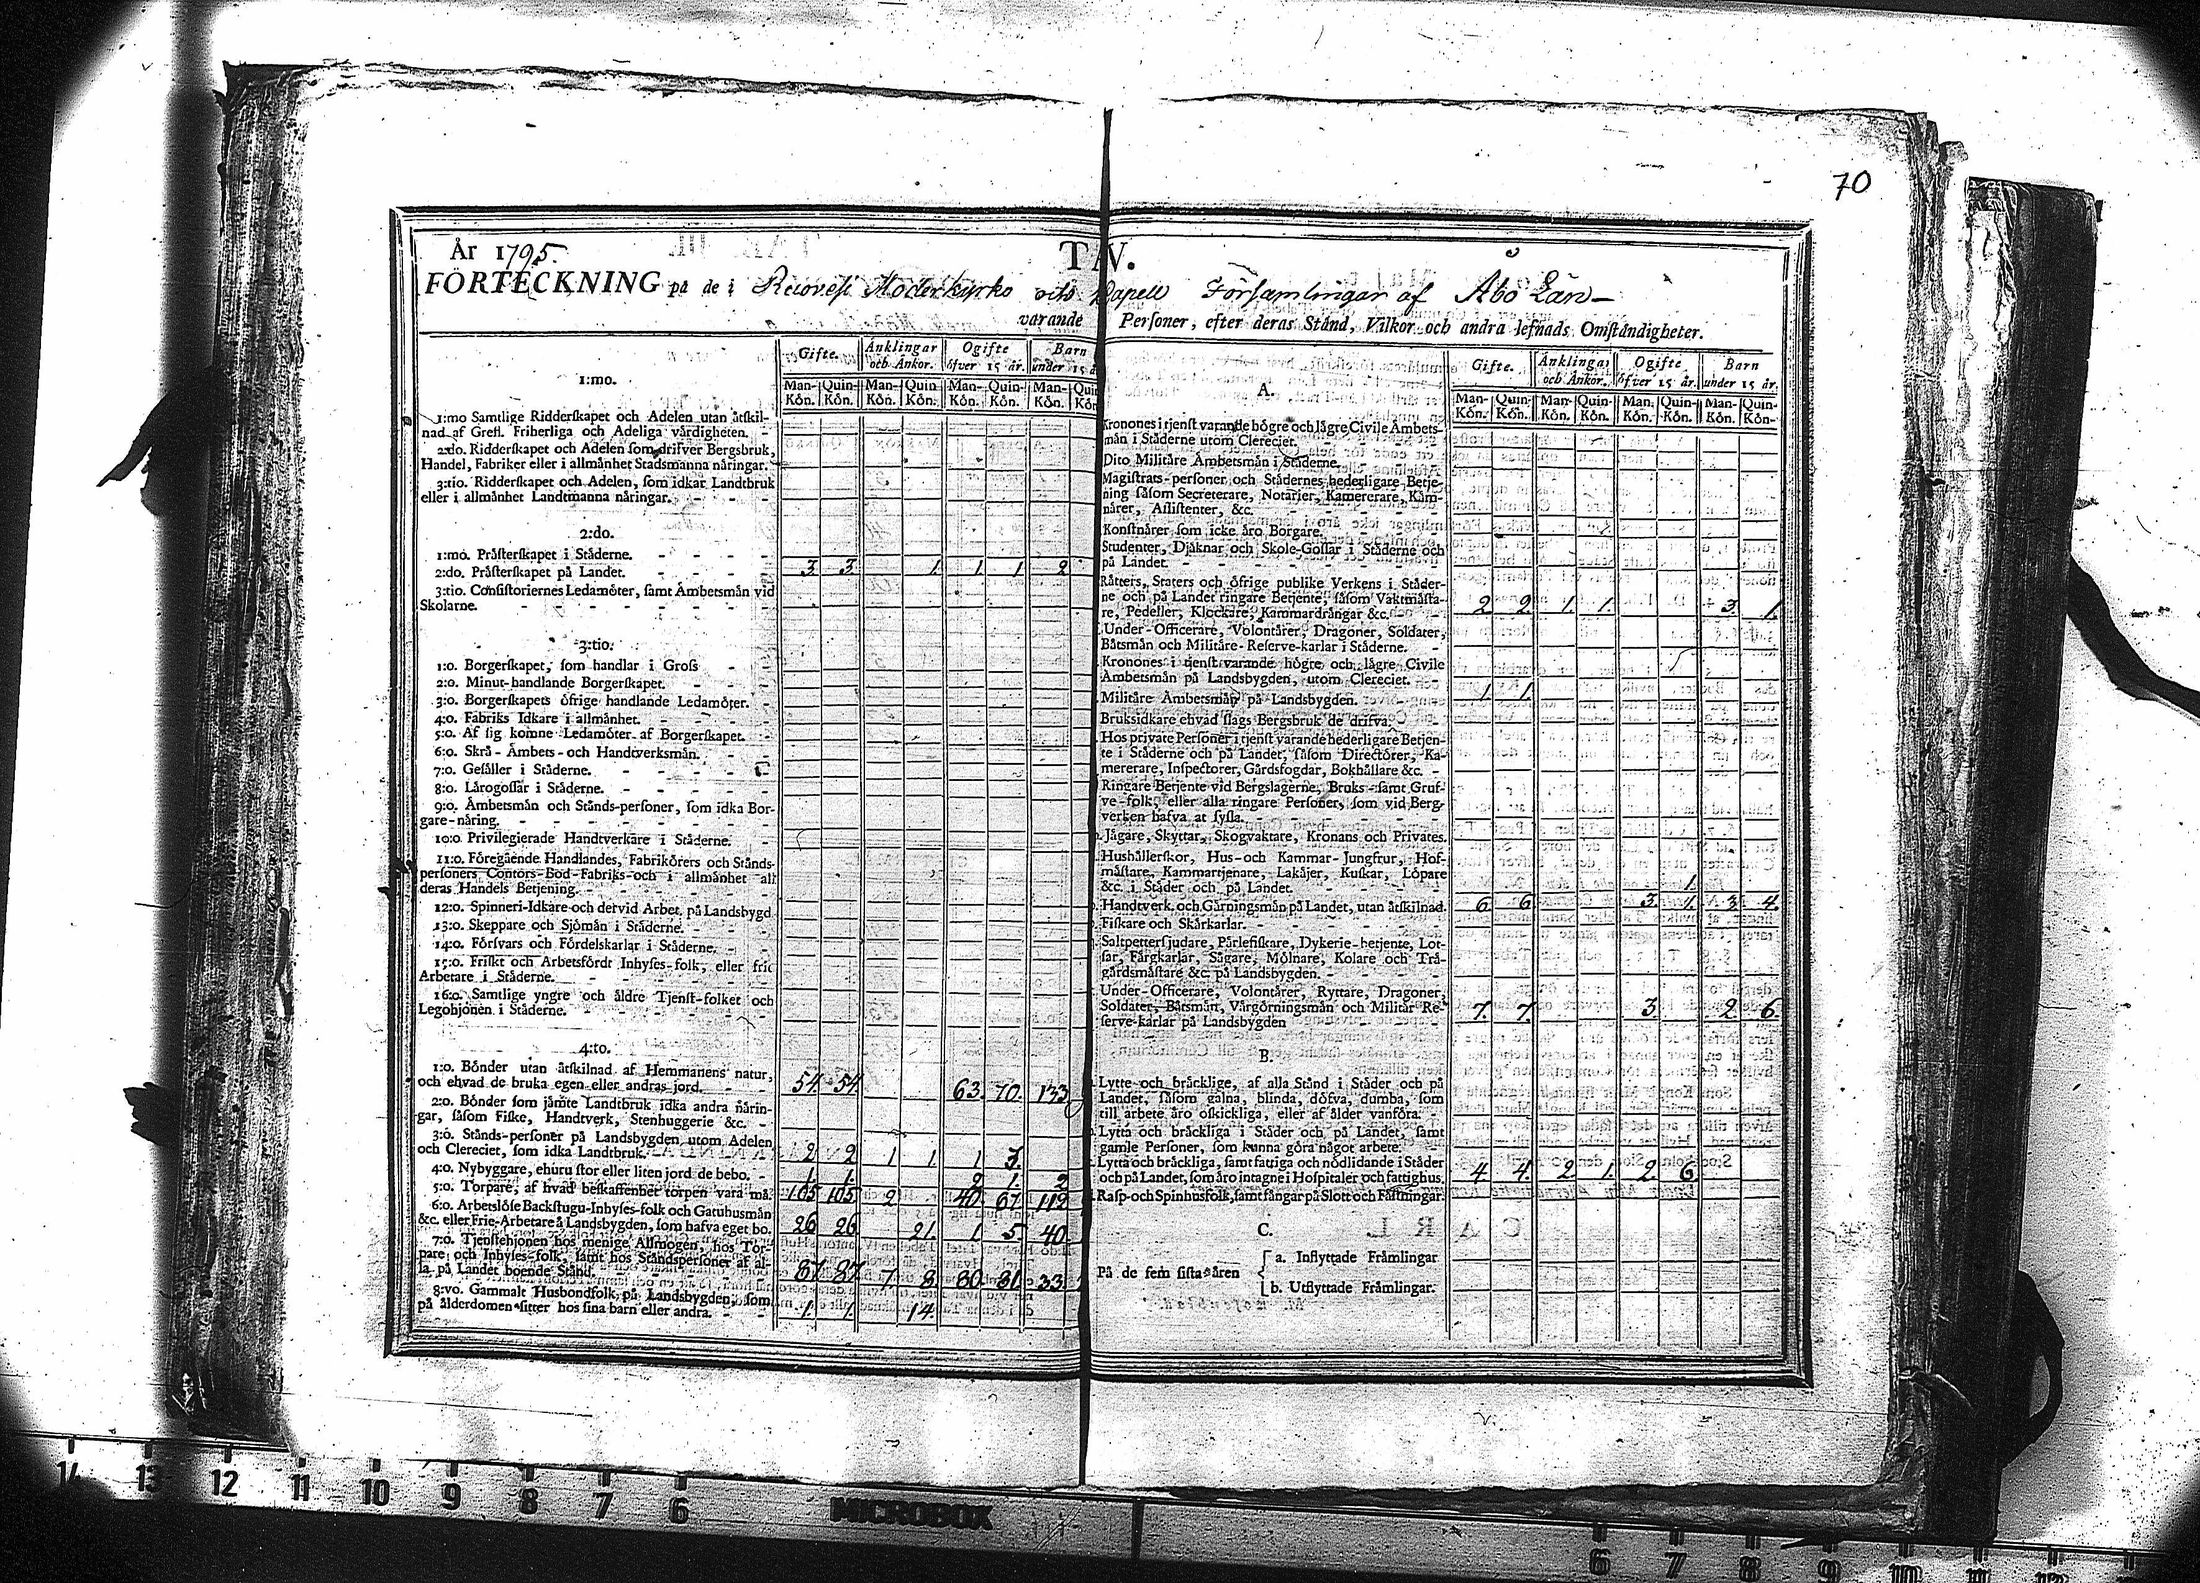 70
År 1795.
T IV.
FÖRTECKNING på de i Moderkyrko Capell Församlingar af Åbo Län
varande Personer, efter deras Stånd, Vilkor och andra lefnads Omståndigheter.
Gifte. Änklingar Ogifte Barn
och Änkor. öfver 15 år. under 15 å
Man- Quin- Man- Quin- Man- Quin- Man- Quin
Kön. Kön. Kön. Kön. Kön. Kön. Kön. Kön
1:mo.
1:mo Samtlige Ridderskapet och Adelen utan åtskil-
nad af Grefl. Friherliga och Adeliga vårdigheten. -
2:do. Ridderskapet och Adelen som drifver Bergsbruk,
Handel, Fabriker eller i allmånhet Stadsmanna nåringar.
3:tio. Ridderskapet och Adelen, som idkar Landtbruk
eller i allmånhet Landtmanna nåringar. - - -
2:do.
1:mo. Pråsterskapet i Ståderne. - - - -
2:do. Pråsterskapet på Landet. - - - - 3. 3. 1. 1. 1 2
3:tio. Consistoriernes Ledamöter, samt Ämbetsmån vid
Skolarne. - - - - - - -
3:tio.
1:o. Borgerskapet, som handlar i Gross - -
2:o. Minut-handlande Borgerskapet. - - -
3:o. Borgerskapets öfrige handlande Ledamöter. -
4:o. Fabriks Idkare i allmånhet. - - - -
5:o. Af sig komne Ledamöter af Borgerskapet. -
6:o. Skrå - Ämbets - och Handtverksmån. - -
7:o. Gesåller i Ståderne. - - - -
8:o. Lårogossar i Ståderne. - - - -
9:o. Ämbetsmån och Stånds-personer, som idka Bor-
gare-nåring. - - - - - - -
10:o Privilegierade Handtverkare i Ståderne. -
11:o. Föregående Handlandes, Fabrikörers och Stånds-
personers Contors-Bod-Fabriks-och i allmånhet all
deras Handels Betjening. - - - - -
12:o. Spinneri-Idkare och dervid Arbet. på Landsbygd
13:o. Skeppare och Sjömån i Ståderne. - - -
14:o. Försvars och Fördelskarlar i Ståderne. - -
15:o. Friskt och Arbetsfördt Inhyses-folk, eller frie
Arbetare i Ståderne. - - - - -
16:o. Samtlige yngre och åldre Tjenst-folket och
Legohjonen i Ståderne. - - - - -
4:to.
1:o. Bönder utan åtskilnad af Hemmanens natur,
och ehvad de bruka egen eller andras jord. - - 54. 54. 63. 70. 133
2:o. Bönder som jåmte Landtbruk idka andra nårin-
gar, såsom Fiske, Handtverk, Stenhuggerie &c. -
3:o. Stånds-personer på Landsbygden utom Adelen
och Clereciet, som idka Landtbruk. 2 2 1 1. 1 3.
4:o. Nybyggare, ehuru stor eller liten jord de bebo. - 1. 1. 2 1. 2
5:o. Torpare, af hvad beskaffenhet torpen vara må. 105 105 2 40. 67 112
6:o. Arbetslöse Backstugu-Inhyses-folk och Gatuhusmån
&c. eller Frie-Arbetare å Landsbygden, som hafva eget bo. 26 26 21. 1. 5. 40
7:o. Tjenstehjonen hos menige Allmogen, hos Tor-
pare och Inhyses-folk, samt hos Ståndspersoner af al-
la på Landet boende Stånd. - - - - 87 87 7 8 80. 81. 33
8:vo. Gammalt Husbondfolk, på Landsbygden, som
på ålderdomen sitter hos sina barn eller andra. - - 1. 1. 14.
Gifte. Änklingar Ogifte Barn
och Änkor. öfver 15 år. under 15 år.
Man- Quin- Man- Quin- Man- Quin- Man- Quin-
Kön. Kön. Kön. Kön. Kön. Kön. Kön. Kön.
A.
Kronones i tjenst varande högre och lågre Civile Ämbets-
mån i Ståderne utom Clereciet. - - - -
Dito Militåre Ämbetsmån i Ståderne.
Magistrats-personer och Stådernes hederligare Betje-
ning såsom Secreterare, Notarier, Kamererare, Kåm-
nårer, Assistenter, &c. - - - -
Konstnårer som icke åro Borgare. - - -
Studenter, Djåknar och Skole-Gossar i Ståderne och
på Landet. - - - - - - -
Råtters, Staters och öfrige publike Verkens i Ståder-
ne och på Landet ringare Betjente, såsom Vaktmåsta-
re, Pedeller, Klockare, Kammardrångar &c. 2 2. 1. 1. 3. 1.
Under-Officerare, Volontårer, Dragoner, Soldater,
Båtsmån och Militåre-Reserve-karlar i Ståderne. -
Kronones i tjenst varande högre och lågre Civile
Ämbetsmån på Landsbygden, utom Clereciet. -
Militåre Ämbetsmån på Landsbygden. 1. 1.
Bruksidkare ehvad slags Bergsbruk de drifva.
Hos private Personer i tjenst varande hederligare Betjen-
te i Ståderne och på Landet, såsom Directörer, Ka-
mererare, Inspectorer, Gårdsfogdar, Bokhållare &c. -
Ringare Betjente vid Bergslagerne, Bruks-samt Gruf-
ve-folk, eller alla ringare Personer, som vid Berg-
verken hafva at syssla. - - - - -
Jågare, Skyttar, Skogvaktare, Kronans och Privates.
Hushållerskor, Hus-och Kammar-Jungfrur, Hof-
måstare, Kammartjenare, Lakåjer, Kuskar, Löpare
&c. i Ståder och på Landet. - - - - 1.
Handtverk. och Gårningsmån på Landet, utan åtskilnad. 6 6 3. 1. 3 4.
Fiskare och Skårkarlar. - - - - -
Saltpettersjudare, Pårlefiskare, Dykerie-betjente, Lot-
sar, Fårgkarlar, Sågare, Mölnare, Kolare och Trå-
gårdsmåstare &c. på Landsbygden. - - - -
Under-Officerare, Volontårer, Ryttare, Dragoner,
Soldater, Båtsmån, Vårgörningsmån och Militår Re-
serve-karlar på Landsbygden - - - - 7. 7. 3. 2 6.
B.
Lytte och bråcklige, af alla Stånd i Ståder och på
Landet, såsom galna, blinda, döfva, dumba, som
till arbete åro oskickliga, eller af ålder vanföra. -
Lytta och bråckliga i Ståder och på Landet, samt
gamle Personer, som kunna göra något arbete.
Lytta och bråckliga, samt fattiga och nödlidande i Ståder
och på Landet, som åro intagne i Hospitaler och fattighus. 4 4. 2. 1. 2. 6.
Rasp-och Spinhusfolk, samt fångar på Slott och Fåstningar.
C.
På de sem sista åren
a. Inflyttade Fråmlingar
b. Utflyttade Fråmlingar.
14 13 12 11 10 9 8 7 6
MICROBOX
6 7 8 9 10